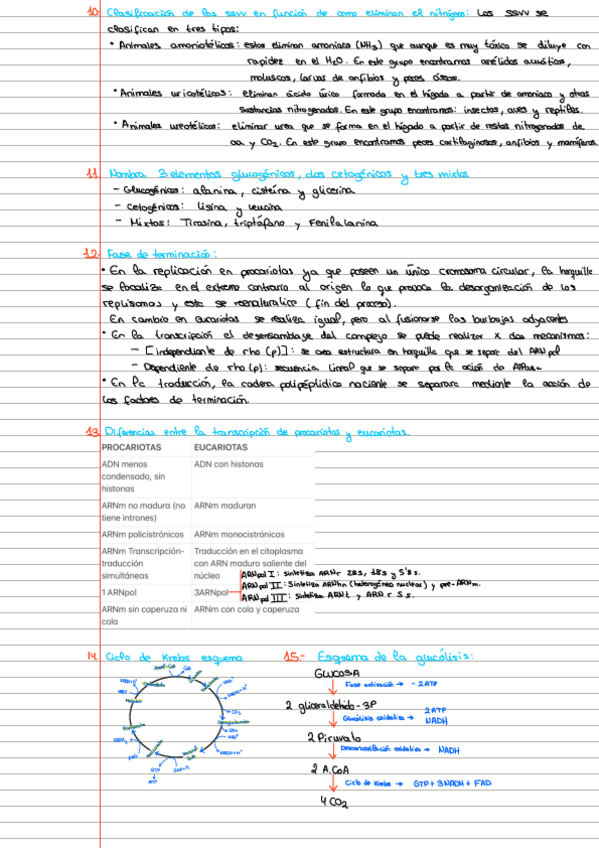 10. Clasificación de los ssvv en función de como eliminan el nitrógeno: Los ssvv se
clasifican en tres tipos:
• Animales amoniotélicos: estos eliminan amoniaco (NH3) que aunque es muy tóxico se diluye con
rapidez en el H2O. En este grupo encontramos anélidos acuáticos,
moluscos, larvas de anfibios y peces óseos.
• Animales uricotélicos: eliminan ácido úrico formado en el hígado a partir de amoniaco y otras
sustancias nitrogenadas. En este grupo encontramos: insectos, aves y reptiles.
• Animales ureotélicos: eliminar urea que se forma en el hígado a partir de restos nitrogenados de
aa y CO2. En este grupo encontramos peces cartilaginosos, anfibios y mamíferos.
11. Nombra 3 elementos glucogénicos, dos cetogénicos y tres mixtos
- Glucogénicos: alanina, cisteína y glicerina
- Cetogénicos: lisina y leucina
- Mixtos: Tirosina, triptófano y Fenilalanina
12. Fase de terminación:
• En la replicación en procariotas ya que poseen un único cromosoma circular, la horquilla
se localiza en el extremo contrario al origen lo que provoca la desorganización de los
replisomas y este se renaturalice (fin del proceso).
En cambio en eucariotas se realiza igual, pero al fusionarse las burbujas adyacentes
• En la transcripción el desensamblaje del complejo se puede realizar x dos mecanismos:
- [independiente de rho (ρ)]: se crea estructura en horquilla que se separe del ARN pol
- Dependiente de rho (ρ): secuencia lineal que se separe por la acción de
• En la traducción, la cadena polipéptidica naciente se separara mediante la acción de
los factores de terminación.
13. Diferencias entre la transcripción de procariotas y eucariotas.
PROCARIOTAS EUCARIOTAS
ADN menos ADN con histonas
condensado, sin
histonas
ARNm no madura (no ARNm maduran
tiene intrones)
ARNm policistrónicos ARNm monocistrónicos
ARNm Transcripción- Traducción en el citoplasma
traducción con ARN maduro saliente del
simultáneas núcleo
ARNpol I: sintetiza ARNr 28s, 18s y 5'8s.
ARNpol II: Sintetiza ARNhn (heterogéneo nuclear) y pre-ARNm.
1 ARNpol 3ARNpol
ARNpol III: sintetiza ARNt y ARNr 5s.
ARNm sin caperuza ni ARNm con cola y caperuza
cola
14. Ciclo de Krebs esquema
15.- Esquema de la glucólisis:
GLUCOSA
Fase activación → -2ATP
2 gliceraldehído-3P
Glucólisis oxidativa → 2ATP
NADH
2 Piruvato
Descarboxilación oxidativa → NADH
2 A.CoA
Ciclo de Krebs → GTP + 3NADH + FAD
4 CO2